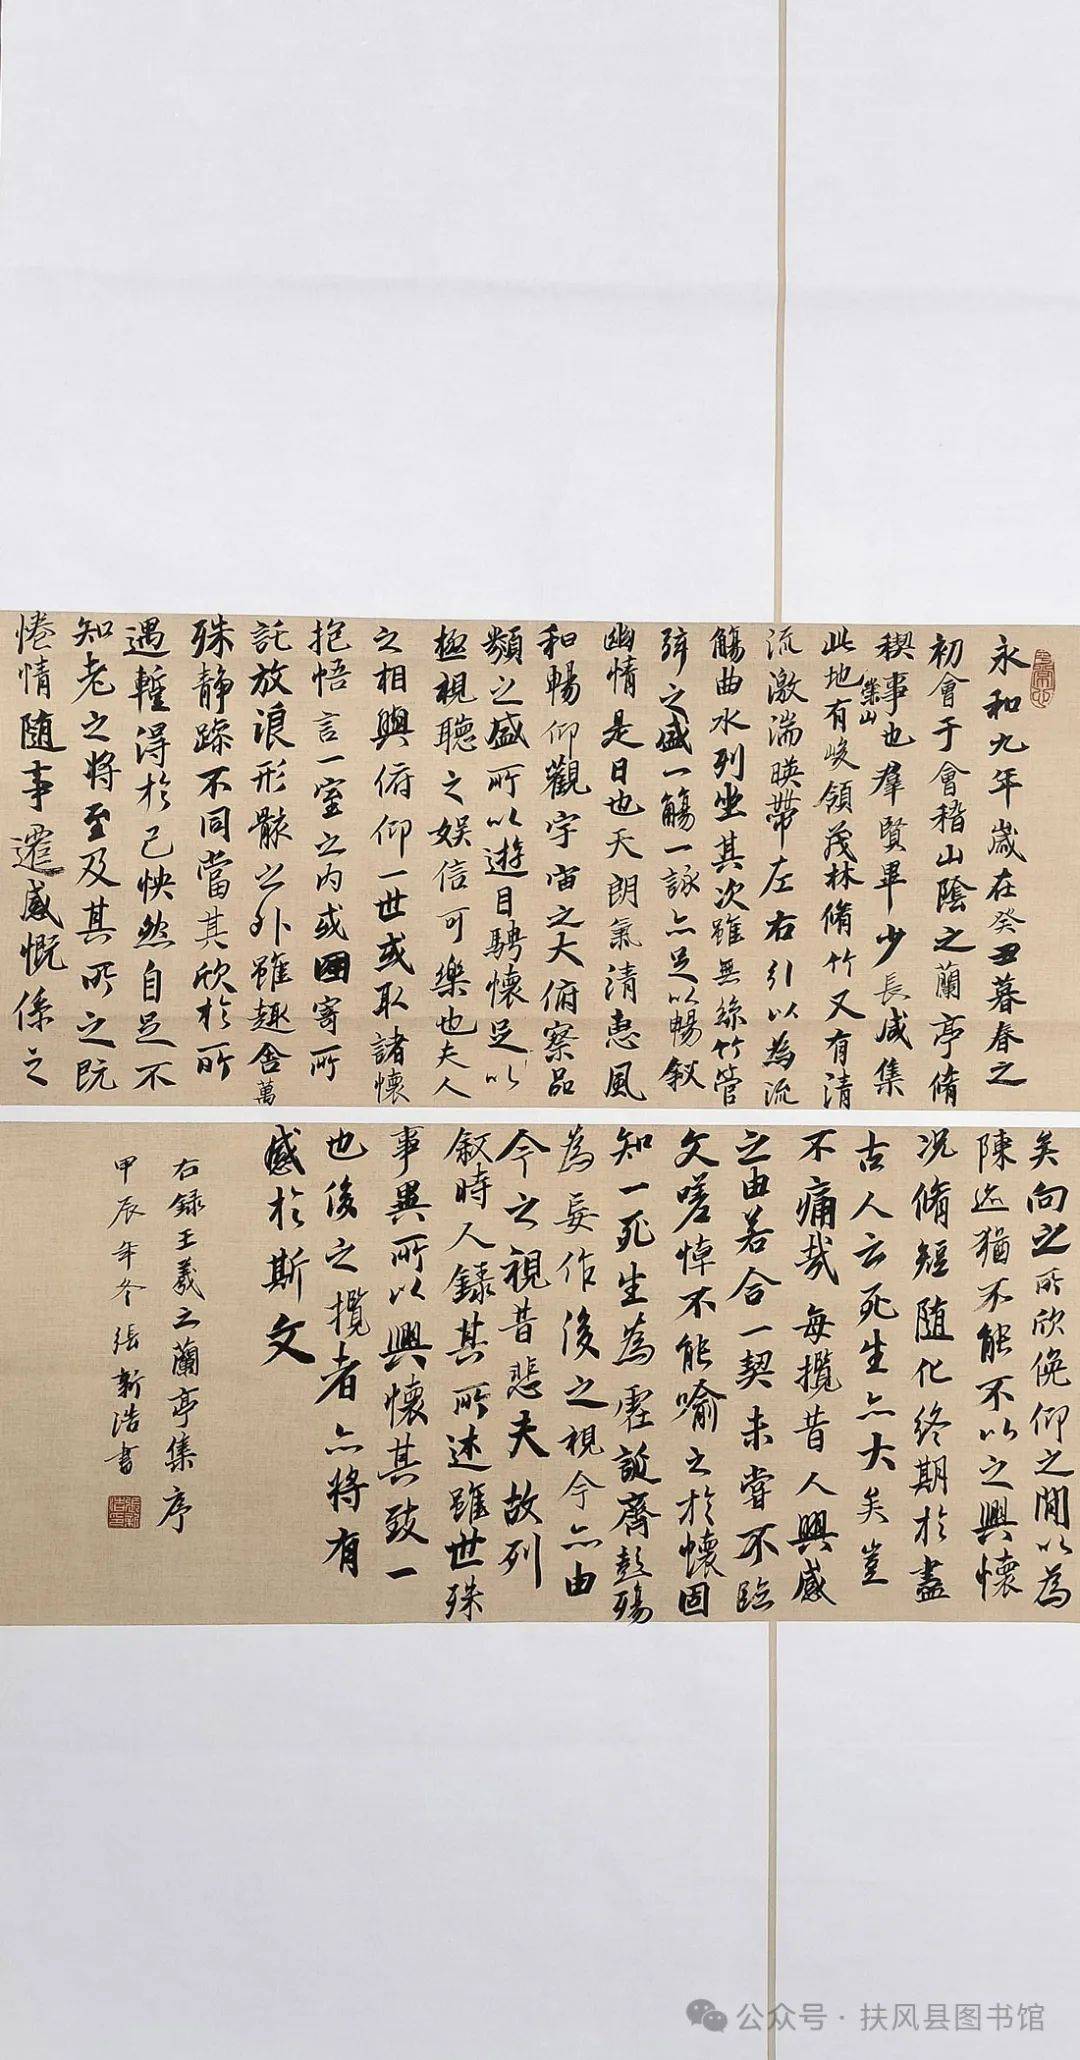 永和九年歲在癸丑暮春之
初會于會稽山陰之蘭亭脩
稧事也羣賢畢少長咸集
此地有崇山峻領茂林脩竹又有清
流激湍暎帶左右引以為流
觴曲水列坐其次雖無絲竹管
弦之盛一觴一詠亦足以暢叙
幽情是日也天朗氣清惠風
和暢仰觀宇宙之大俯察品
類之盛所以遊目騁懷足以
極視聽之娛信可樂也夫人
之相與俯仰一世或取諸懷
抱悟言一室之內或因寄所
託放浪形骸之外雖趣舍萬
殊静躁不同當其欣於所
遇蹔得於己怏然自足不
知老之將至及其所之既
惓情随事遷感慨係之
矣向之所欣俛仰之間以為
陳迹猶不能不以之興懷
况脩短随化终期於盡
古人云死生亦大矣豈
不痛哉每攬昔人興感
之由若合一契未嘗不臨
文嗟悼不能喻之於懷固
知一死生為虛誕齊彭殤
為妄作後之視今亦由
今之視昔悲夫故列
叙時人錄其所述雖世殊
事異所以興懷其致一
也後之攬者亦將有
感於斯文
右録王羲之蘭亭集序
甲辰年冬張新浩書
公众号·扶风县图书馆